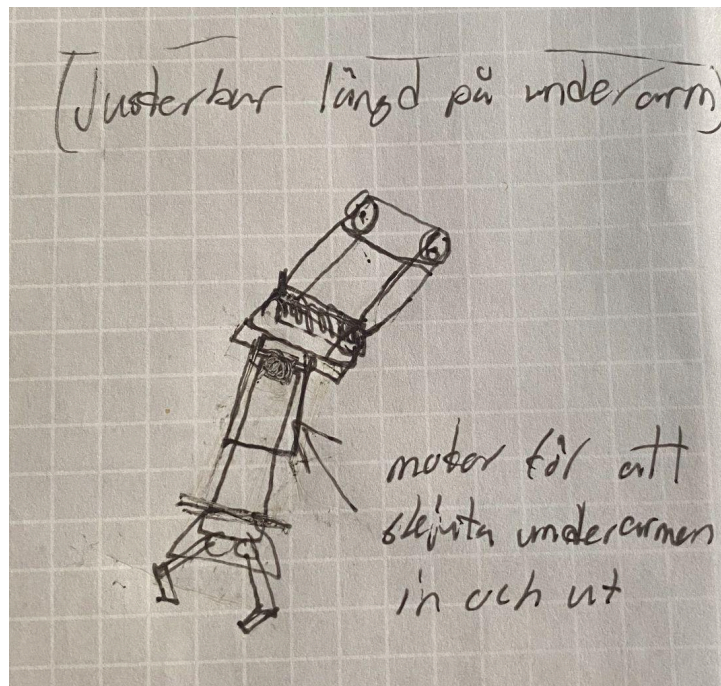 (Justerbar längd på underarm)
motor för att
skjuta underarmen
in och ut